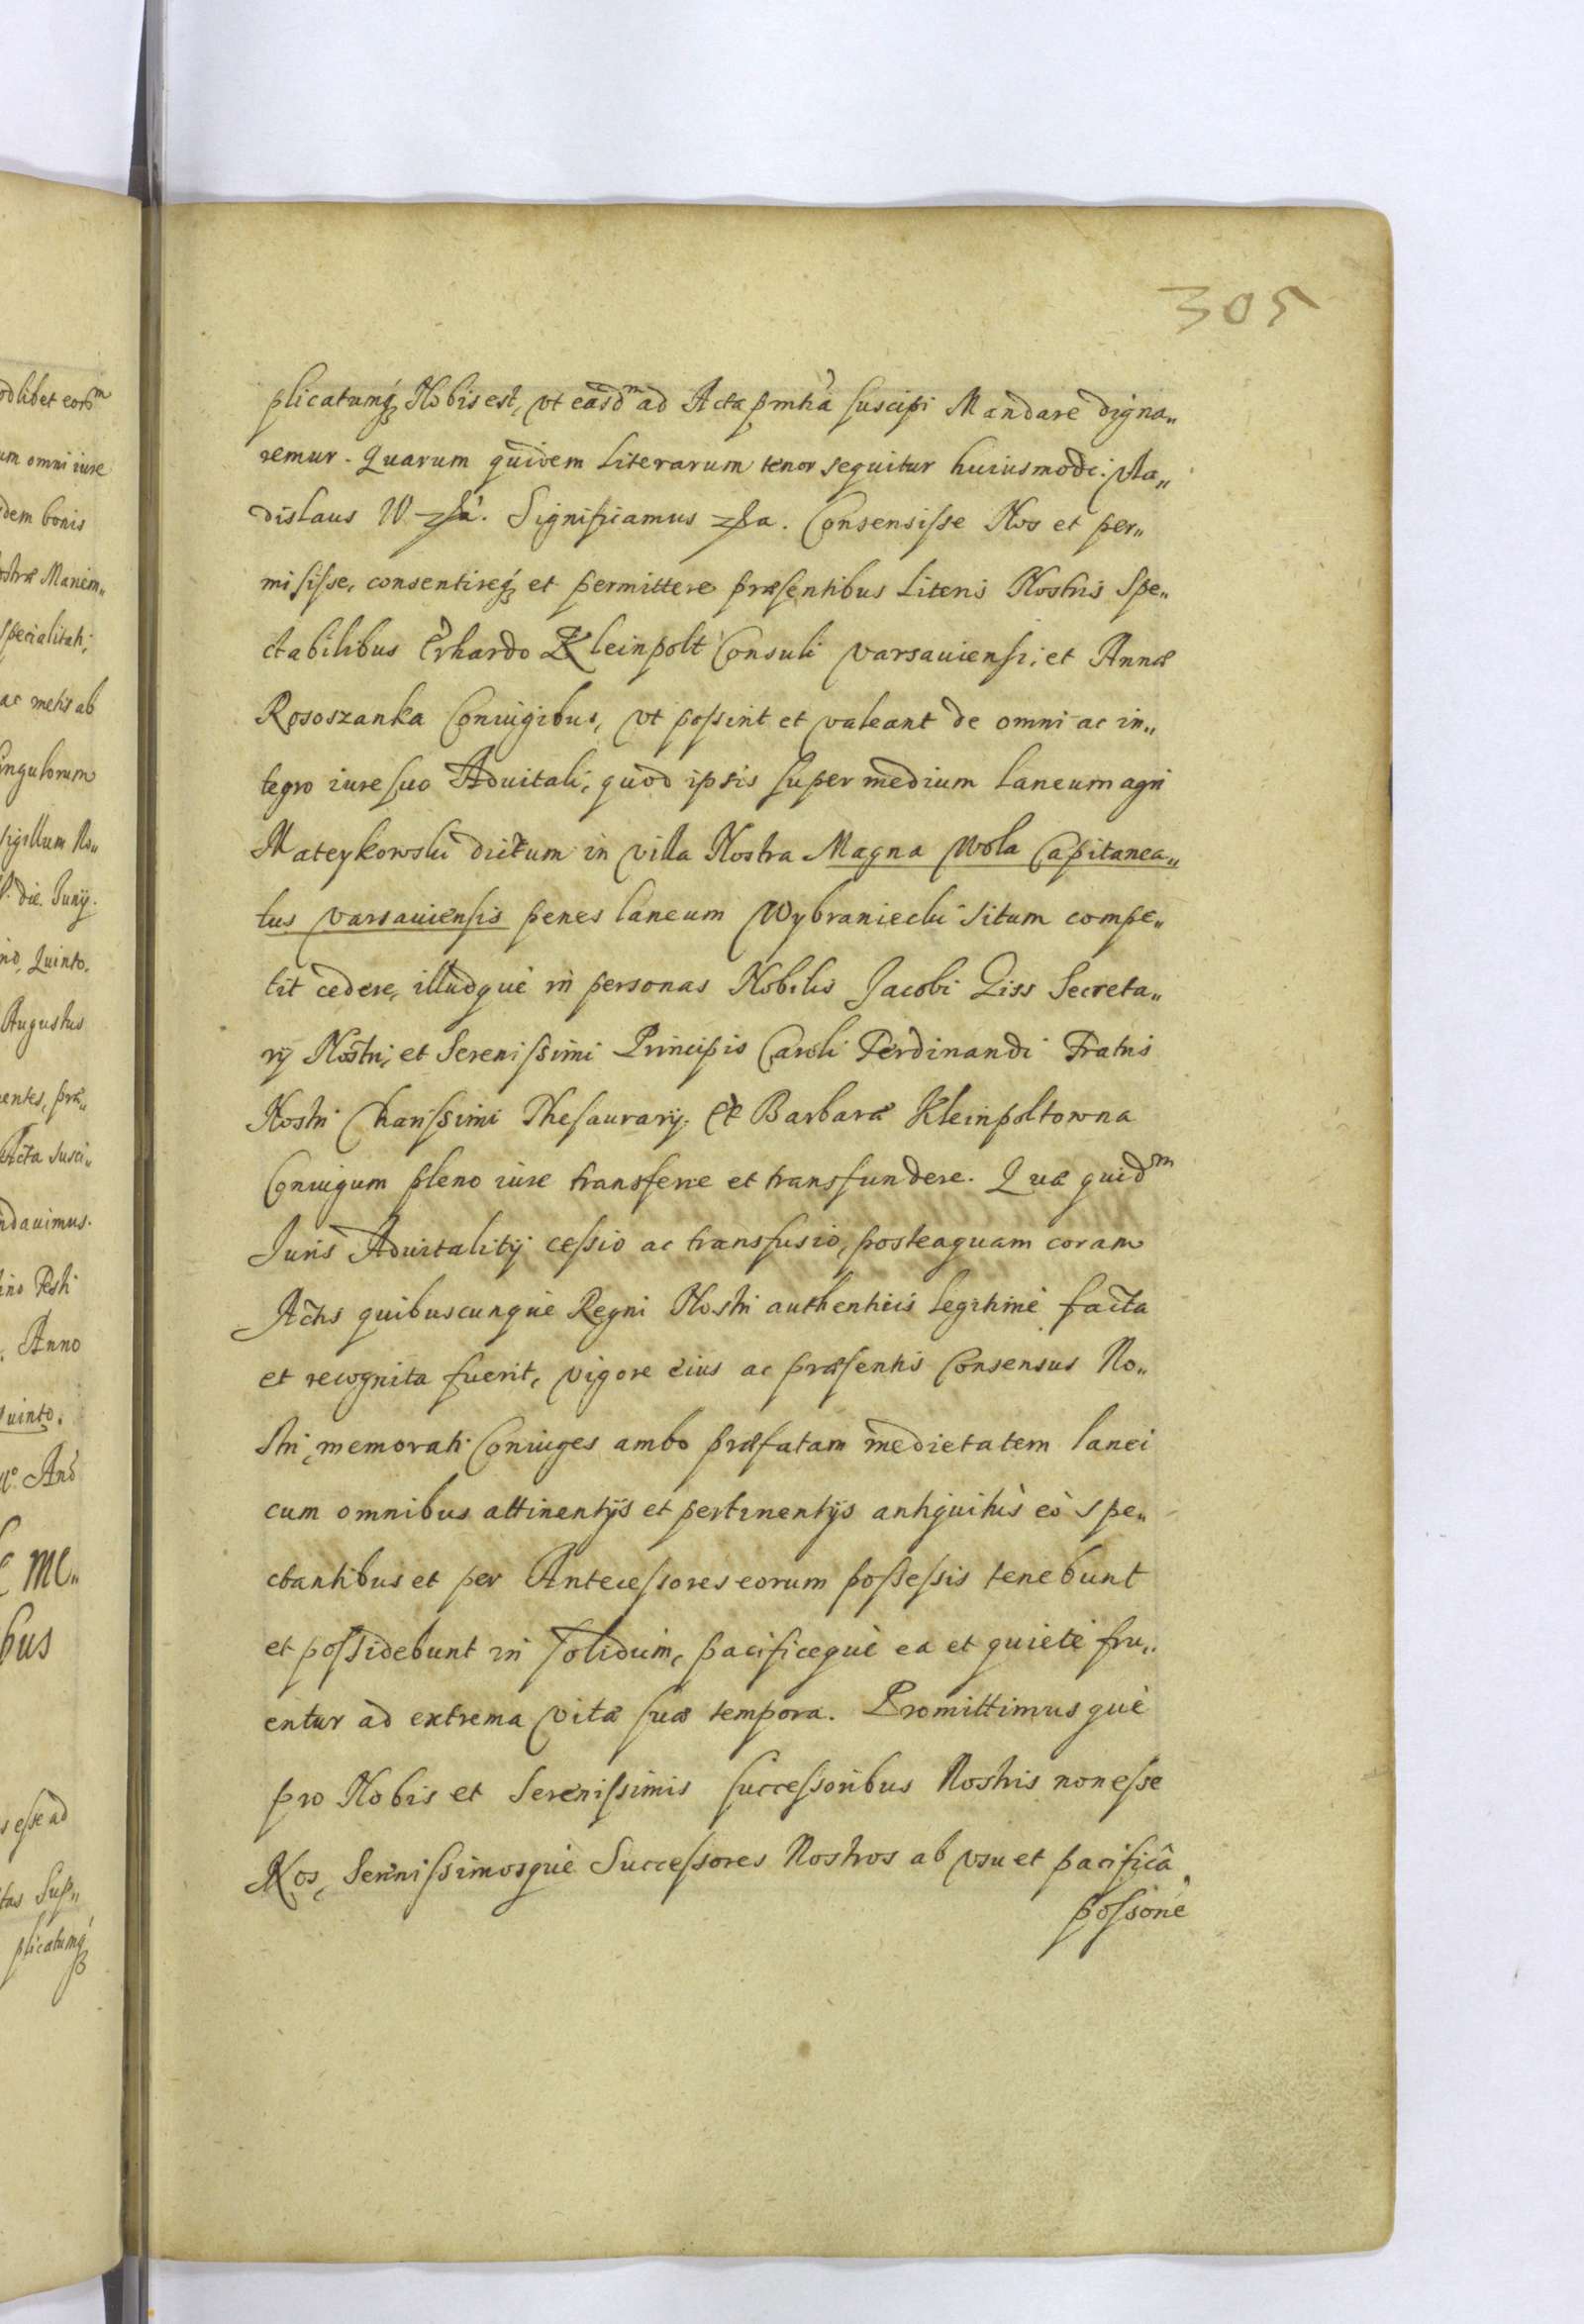 305
plicatumq́ꝫ Nobis est, vt easdᵐ ad Acta pm̃tia suscipi Mandare digna„
remur. Quarum quidem Literarum tenor sequitur huiusmodi: Vla„
dislaus IV. Significamus Consensisse Nos et per„
misisse, consentireq́ꝫ et permittere præsentibus Literis Nostris Spe„
ctabilibus Erhardo Kleinpolt Consuli Varsauiensi, et Annæ
Rososzanka Coniugibus, vt possint et valeant de omni ac in„
tegro iure suo Aduitali, quod ipsis super medium Laneum agri
Mateykowski dictum in villa Nostra Magna Wola Capitanea„
tus Varsauiensis penes laneum Wybraniecki situm compe„
tit cedere, illudquè in personas Nobilis Jacobi Giss Secreta„
rij Nostri, et Serenissimi Principis Caroli Ferdinandi Fratris
Nostri Charissimi Thesaurarij, et Barbaræ Kleinpoltowna
Coniugum pleno iure transferre et transfundere. Quæ quidᵐ
Juris Aduitalitij cessio ac transfusio, posteaquam coram
Actis quibuscunquè Regni Nostri authenticis Legitimè facta
et recognita fuerit, vigore eius ac præsentis Consensus No„
stri, memorati Coniuges ambo præfatam medietatem lanei
cum omnibus attinentijs et pertinentijs antiquitùs eò spe„
ctantibus et per Antecessores eorum possessis tenebunt
et possidebunt in solidum, pacificequè ea et quietè fru„
entur ad extrema vitæ suæ tempora. Promittimusquè
pro Nobis et Serenissimis successoribus Nostris non esse
Nos, Serenissimosquè Successores Nostros ab vsu et pacificâ
possone
odlibet eorᵐ
um omni iure
dem bonis
ostræ Maniem„
specialitati;
ac metis ab
singulorum
sigillum No„
die Junij.
no, Quinto.
Augustus
entes, præ„
Acta susci„
ndauimus.
ino Festi
Anno
uinto.
Me„
bus
s esse ad
tas Sup„
plicatumq́ꝫ